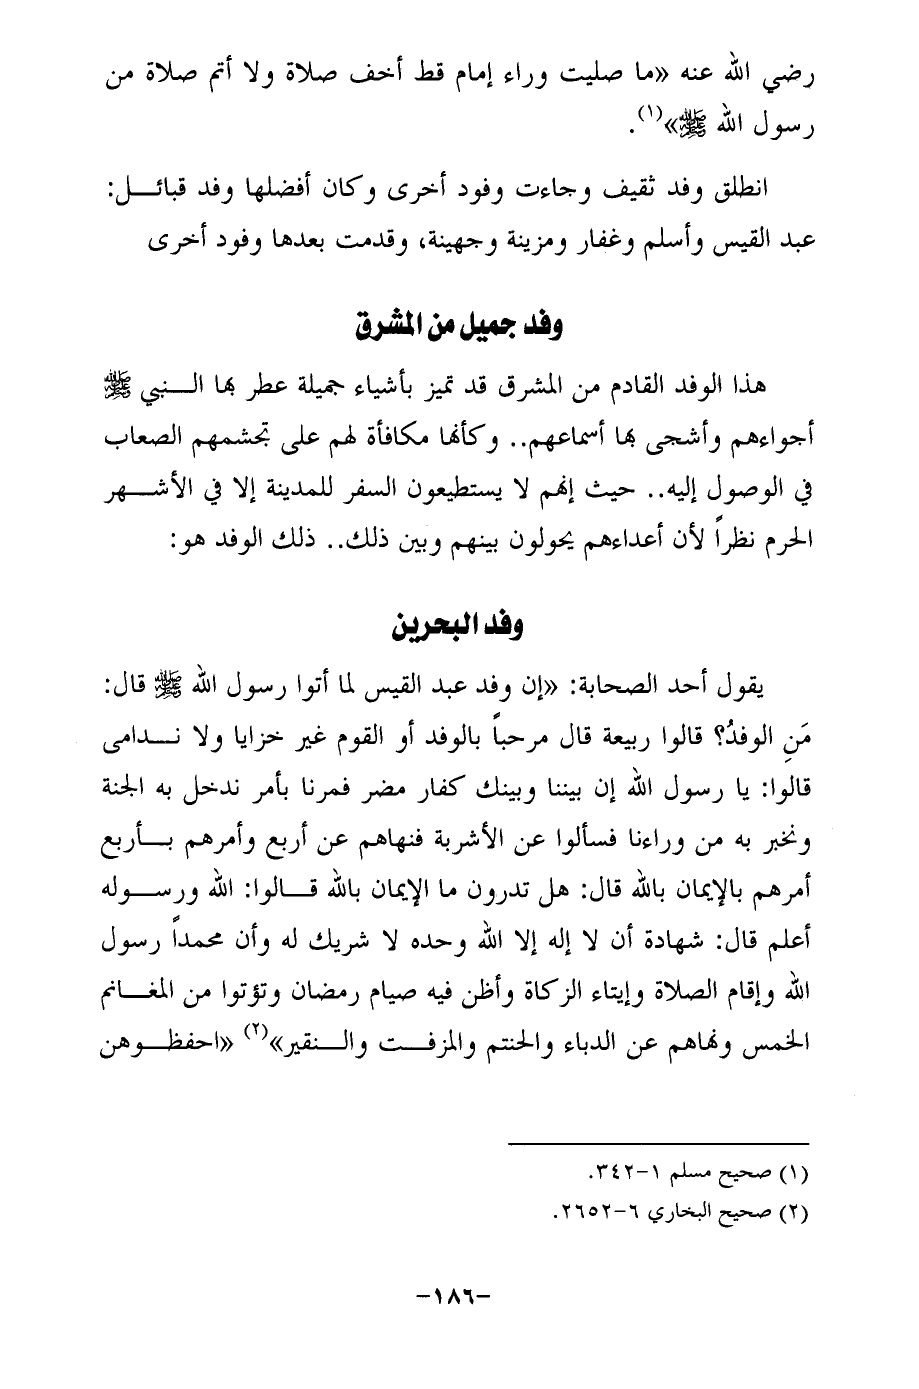 رضي الله عنه «ما صليت وراء إمام قط أخف صلاة ولا أتم صلاة من
رسول الله ﷺ»(١).
انطلق وفد ثقيف وجاءت وفود أخرى وكان أفضلها وفد قبائـل:
عبد القيس وأسلم وغفار ومزينة وجهينة، وقدمت بعدها وفود أخرى
وفد جميل من المشرق
هذا الوفد القادم من المشرق قد تميز بأشياء جميلة عطر بها الـنبي ﷺ
أجواءهم وأشجى بها أسماعهم.. وكأنها مكافأة لهم على تجشمهم الصعاب
في الوصول إليه.. حيث إنهم لا يستطيعون السفر للمدينة إلا في الأشـهر
الحرم نظراً لأن أعداءهم يحولون بينهم وبين ذلك.. ذلك الوفد هو:
وفد البحرين
يقول أحد الصحابة: «إن وفد عبد القيس لما أتوا رسول الله ﷺ قال:
مَنِ الوفدُ؟ قالوا ربيعة قال مرحباً بالوفد أو القوم غير خزايا ولا نـدامى
قالوا: يا رسول الله إن بيننا وبينك كفار مضر فمرنا بأمر ندخل به الجنة
ونخبر به من وراءنا فسألوا عن الأشربة فنهاهم عن أربع وأمرهم بـأربع
أمرهم بالإيمان بالله قال: هل تدرون ما الإيمان بالله قـالوا: الله ورسـوله
أعلم قال: شهادة أن لا إله إلا الله وحده لا شريك له وأن محمداً رسول
الله وإقام الصلاة وإيتاء الزكاة وأظن فيه صيام رمضان وتؤتوا من المغـانم
الخمس ونهاهم عن الدباء والحنتم والمزفـت والـنقير»(٢) «احفظـوهن
(١) صحيح مسلم ١-٣٤٢.
(٢) صحيح البخاري ٦-٢٦٥٢.
-١٨٦-